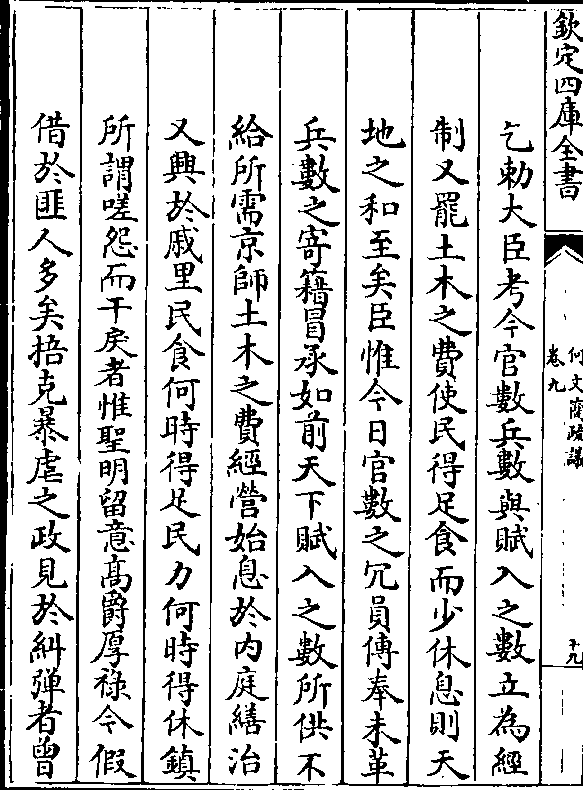 欽定四庫全書
何文簡疏議
卷九
十九
乞勅大臣考今官數兵數與賦入之數立為經
制又罷土木之費使民得足食而少休息則天
地之和至矣臣惟今日官數之冗員傳奉未革
兵數之寄籍冒承如前天下賦入之數所供不
給所需京師土木之費經營始息於内庭繕治
又興於戚里民食何時得足民力何時得休鎮
所謂嗟怨而干戾者惟聖明留意髙爵厚祿今假
借於匪人多矣掊克暴虐之政見於糾彈者曾